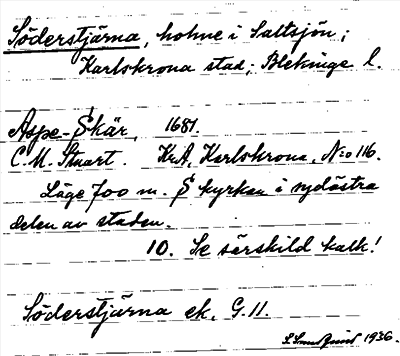 Söderstjärna, holme i Saltsjön;
Karlskrona stad; Blekinge l.
Aspe-Skär, 1681.
C. M. Stuart. Kr.A. Karlskrona, N:o 116.
Läge 700 m. S kyrkan i sydöstra
delen av staden.
10. Se särskild kalk!
Söderstjärna ek. G.11.
1936.